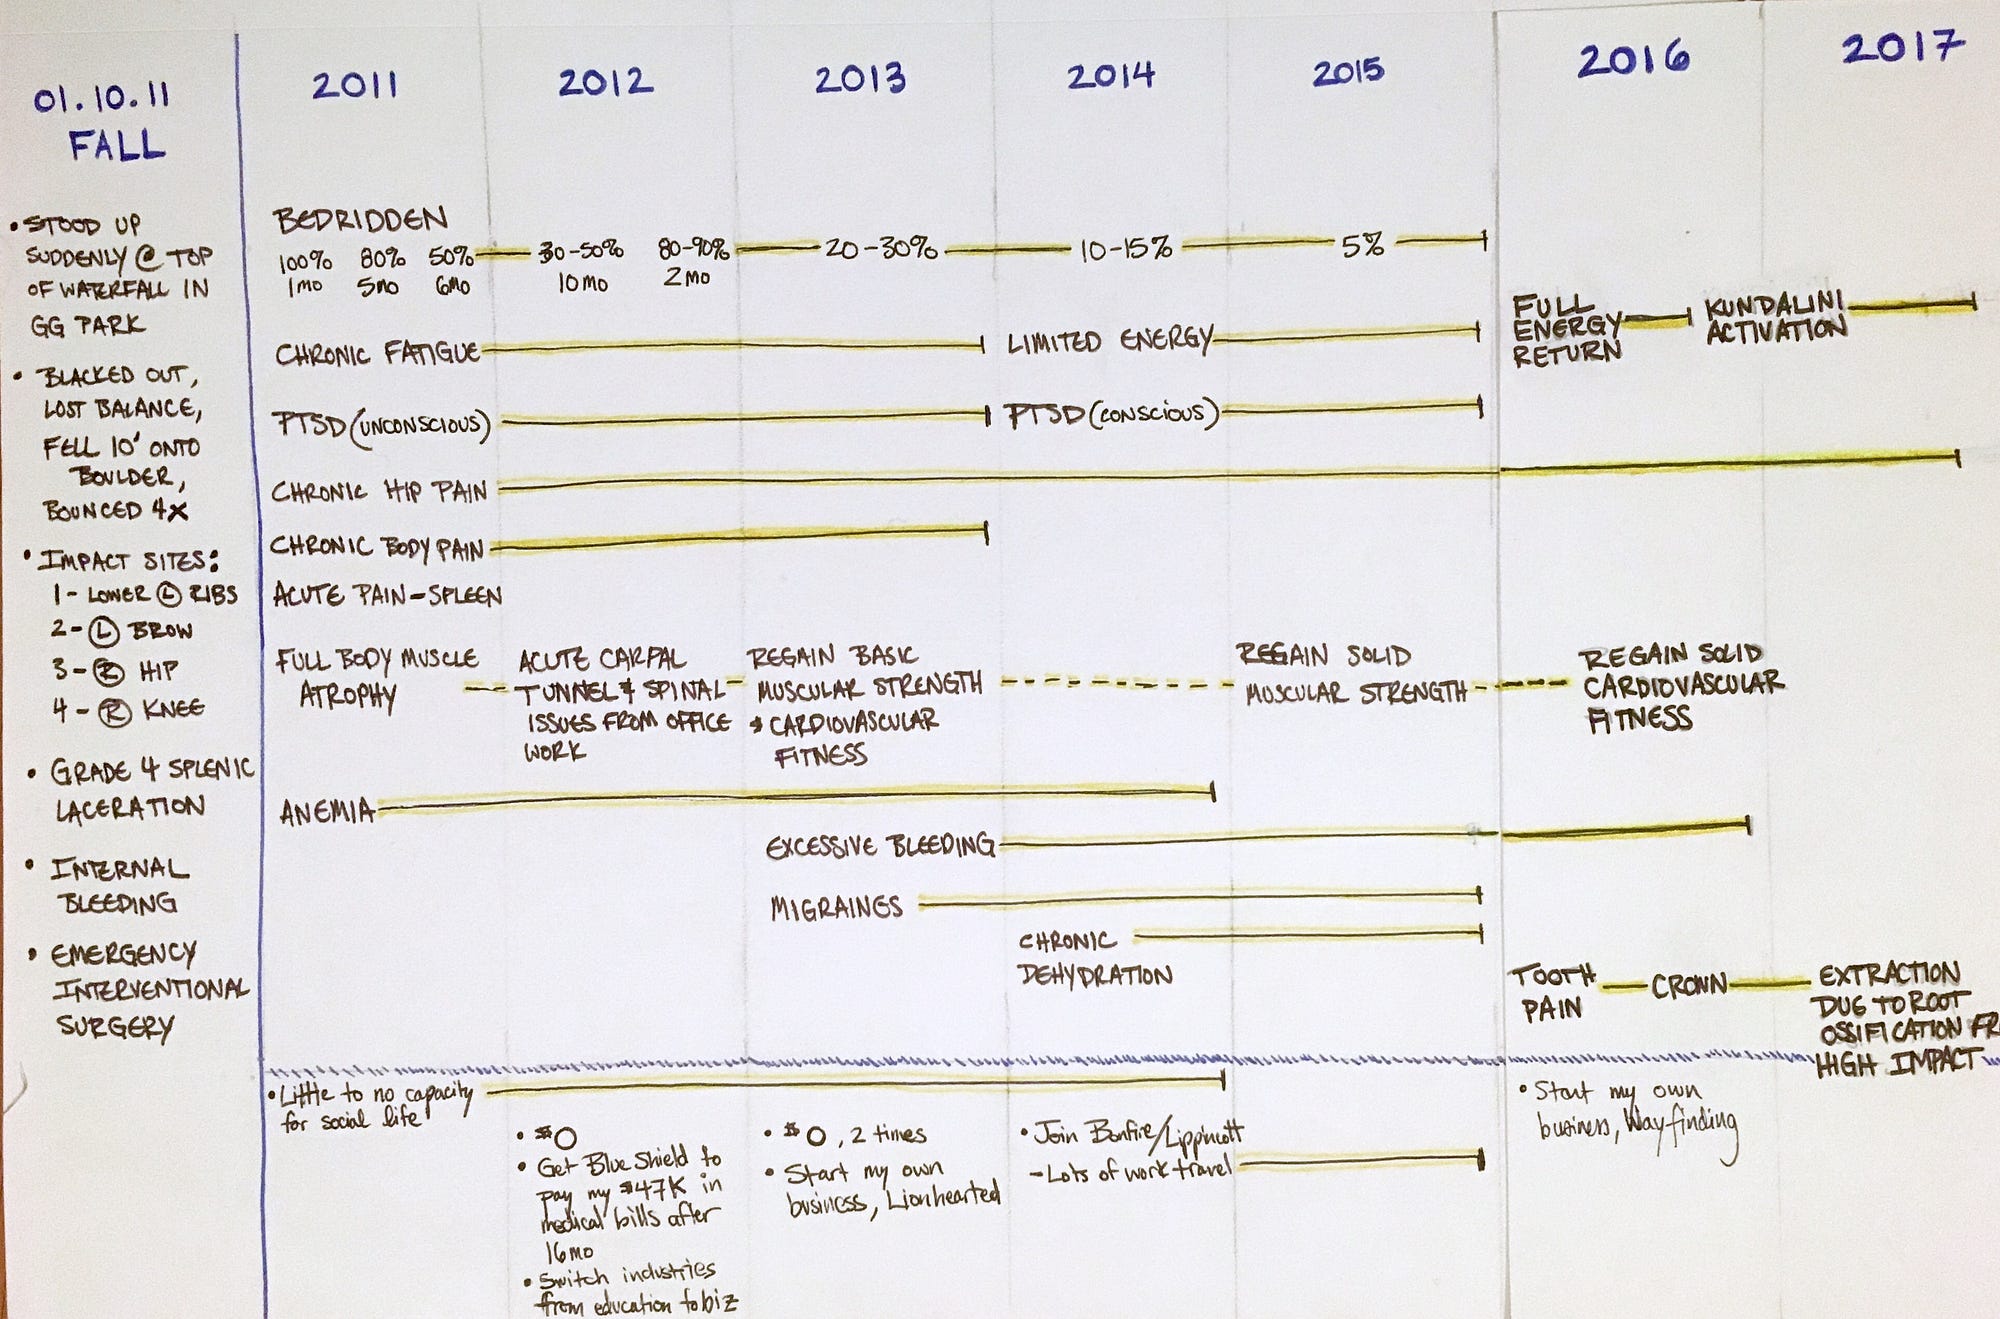 01.10.11
FALL
• STOOD UP
SUDDENLY @ TOP
OF WATERFALL IN
GG PARK
• BLACKED OUT,
LOST BALANCE,
FELL 10' ONTO
BOULDER,
BOUNCED 4X
• IMPACT SITES:
1- LOWER Ⓛ RIBS
2- Ⓛ BROW
3- Ⓡ HIP
4- Ⓡ KNEE
• GRADE 4 SPLENIC
LACERATION
• INTERNAL
BLEEDING
• EMERGENCY
INTERVENTIONAL
SURGERY
2011 2012 2013 2014 2015 2016 2017
BEDRIDDEN
100% 80% 50% 30-50% 80-90% 20-30% 10-15% 5%
1mo 5mo 6mo 10mo 2mo
FULL
ENERGY
RETURN
KUNDALINI
ACTIVATION
CHRONIC FATIGUE LIMITED ENERGY
PTSD (UNCONSCIOUS) PTSD (CONSCIOUS)
CHRONIC HIP PAIN
CHRONIC BODY PAIN
ACUTE PAIN-SPLEEN
FULL BODY MUSCLE
ATROPHY
ACUTE CARPAL
TUNNEL & SPINAL
ISSUES FROM OFFICE
WORK
REGAIN BASIC
MUSCULAR STRENGTH
& CARDIOVASCULAR
FITNESS
REGAIN SOLID
MUSCULAR STRENGTH
REGAIN SOLID
CARDIOVASCULAR
FITNESS
ANEMIA
EXCESSIVE BLEEDING
MIGRAINES
CHRONIC
DEHYDRATION
TOOTH
PAIN
CROWN
EXTRACTION
DUE TO ROOT
OSSIFICATION FR
HIGH IMPACT
• Little to no capacity
for social life
• $0
• Get Blue Shield to
pay my $47K in
medical bills after
16mo
• Switch industries
from education to biz
• $0, 2 times
• Start my own
business, Lionhearted
• Join Bonfire/Lippincott
- Lots of work travel
• Start my own
business, Wayfinding